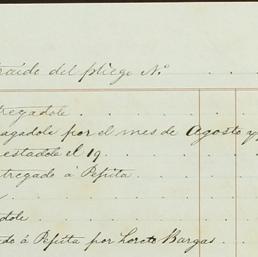 raido del pliego N.º
tregadole
agadole por el mes de Agosto y
estadole el 19
ntregado á Pepita
dole
do á Pepita por Loreto Bargas